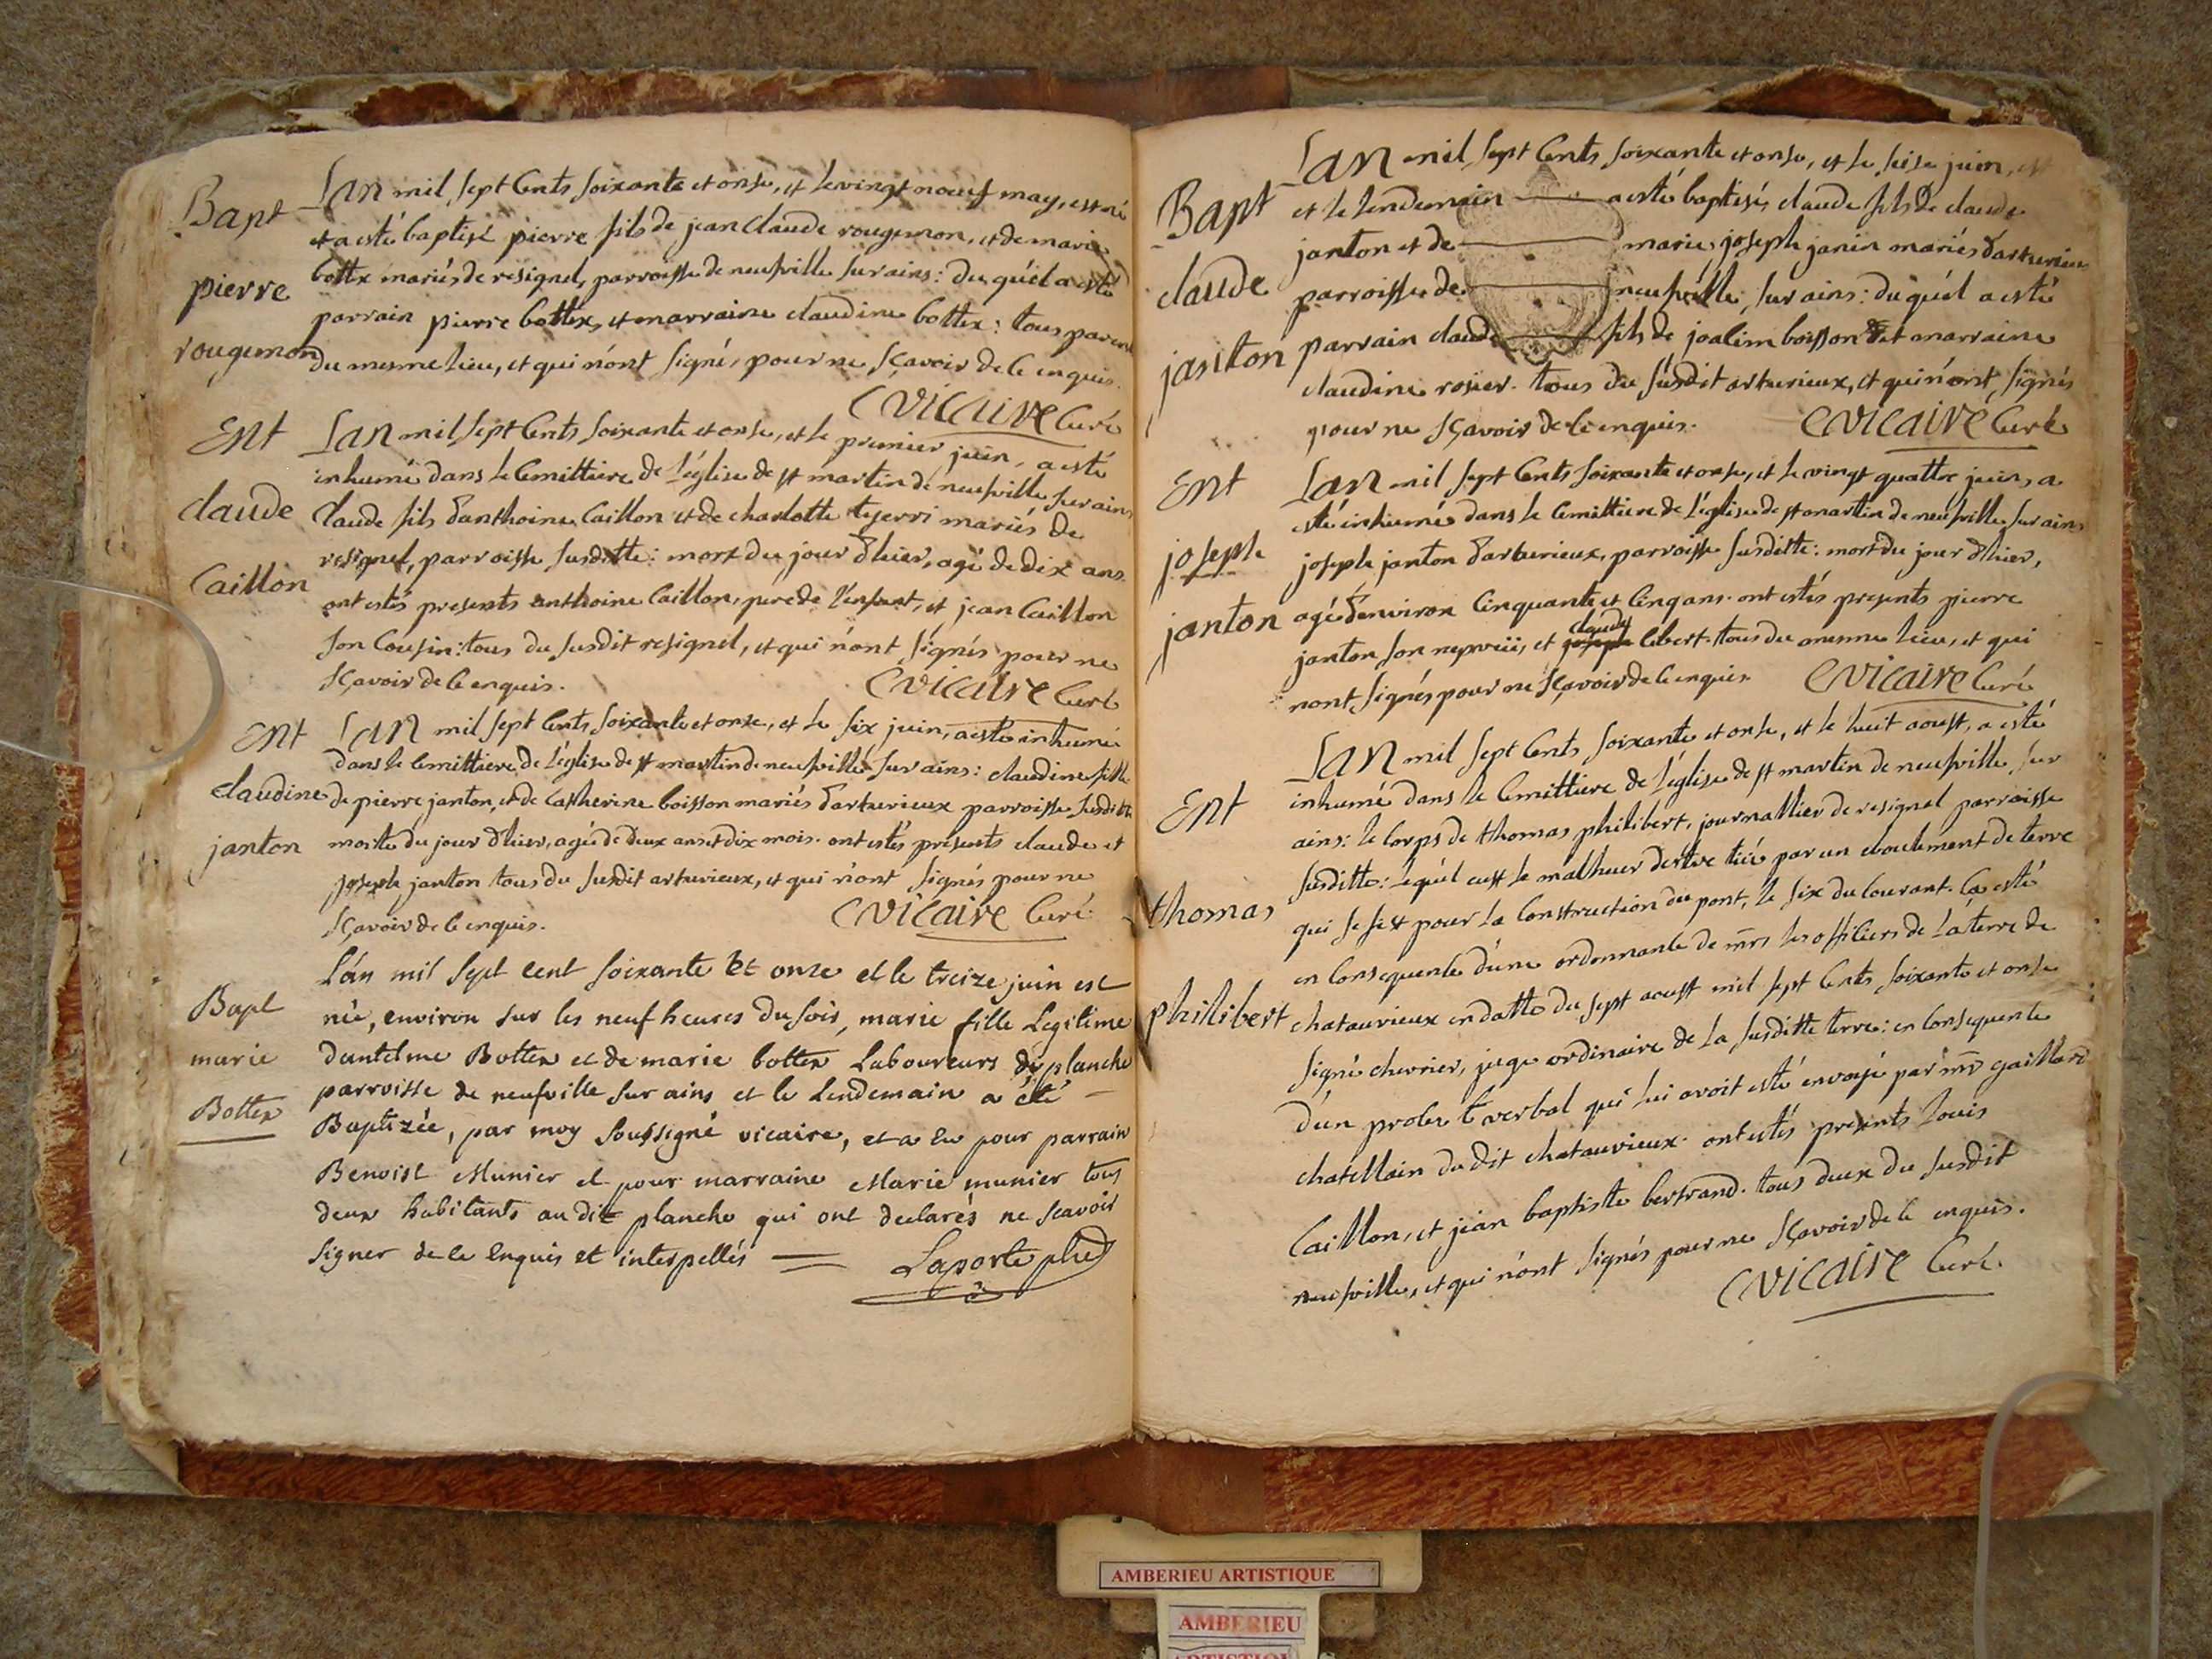 Bapt
pierre
rougemon
Lan mil sept Cents soixante et onse, et le vingt noeuf may, est né
et a esté baptisé pierre fils de jean claude rougemon, et de marie
bottex mariés de resignel, parroisse de neufville sur ains: du quél a esté
parrain pierre bottex, et marraine claudine bottex: tous parents
du mesme lieu, et qui n'ont signé, pour ne sçavoir de ce enquis.
Vicaire Curé
Ent
claude
Caillon
Lan mil sept Cents soixante et onse, et le premier juin, a esté
inhumé dans le Cemittiere de l'église de st martin de neufville sur ains
Claude fils d'anthoine Caillon et de charlotte tyerri mariés de
resignel, parroisse susditte: mort du jour d'hier, agé de dix ans.
ont estés presents anthoine Caillon, pere de l'enfant, et jean Caillon
son Cousin: tous du susdit resignel, et qui n'ont signés pour ne
sçavoir de ce enquis.
Vicaire Curé
Ent
claudine
janton
Lan mil sept Cents soixante et onse, et le six juin, a esté inhumé
dans le Cemittiere de l'église de st martin de neufville sur ains: claudine fille
de pierre janton, et de Catherine boisson mariés d'arturieux parroisse susditte
morte du jour d'hier, agé de deux ans et dix mois. ont estés présents claude et
joseph janton tous du susdit arturieux, et qui n'ont signés pour ne
sçavoir de ce enquis.
Vicaire Curé
Bapt
marie
Bottex
L'an mil sept cent soixante et onze et le treize juin est
née, environ sur les neuf heures du soir, marie fille Legitime
d'antelme Bottex et de marie bottex Laboureurs de planche
parroisse de neufville sur ains et le Lendemain a été
Baptizée, par moy soussigné vicaire, et a eu pour parrain
Benoist Munier et pour marraine Marie munier tous
deux habitants au dit planche qui ont declarés ne scavoir
signer de ce Enquis et interpellés
Laporte ptre
Bapt
claude
janton
Lan mil sept Cents soixante et onse, et le seise juin, est
et le lendemain a esté baptisé, claude fils de claude
janton et de marie joseph janin mariés d'arturieux
parroisse de neufville sur ains: du quél a esté
parrain claude fils de joalim boisson et marraine
claudine rosier. tous du susdit arturieux, et qui n'ont signés
pour ne sçavoir de ce enquis.
Vicaire Curé
Ent
joseph
janton
Lan mil sept Cents soixante et onse, et le vingt quattre juin, a
esté inhumé dans le Cemittiere de l'église de st martin de neufville sur ains
joseph janton d'arturieux, parroisse susditte: mort du jour d'hier,
agé d'environ Cinquante et Cinq ans. ont estés presents pierre
janton son nepveü, et claude libert. tous du mesme lieu, et qui
n'ont signés pour ne sçavoir de ce enquis
Vicaire Curé
Ent
thomas
philibert
Lan mil sept Cents soixante et onse, et le huit aoust, a esté
inhumé dans le Cemittiere de l'église de st martin de neufville sur
ains: le Corps de thomas philibert, journallier de resignel parroisse
susditte: lequél eust le malheur destre tüé par un eboulement de terre
qui se fist pour la Construction du pont, le six du Courant. Ca esté
en Consequence d'une ordonnance de mrs les officiers de la terre de
chatauvieux en datte du sept aoust mil sept Cents soixante et onse
signé chevrier, juge ordinaire de la susditte terre: en Consequence
d'un proces verbal qui lui avoit esté envoyé par mr gaillard
chatellain du dit chatauvieux. ont estés presents louis
Caillon, et jean baptiste bertrand. tous deux du susdit
neufville, et qui n'ont signés pour ne sçavoir de ce enquis.
Vicaire Curé.
AMBERIEU ARTISTIQUE
AMBERIEU
ARTISTIQUE